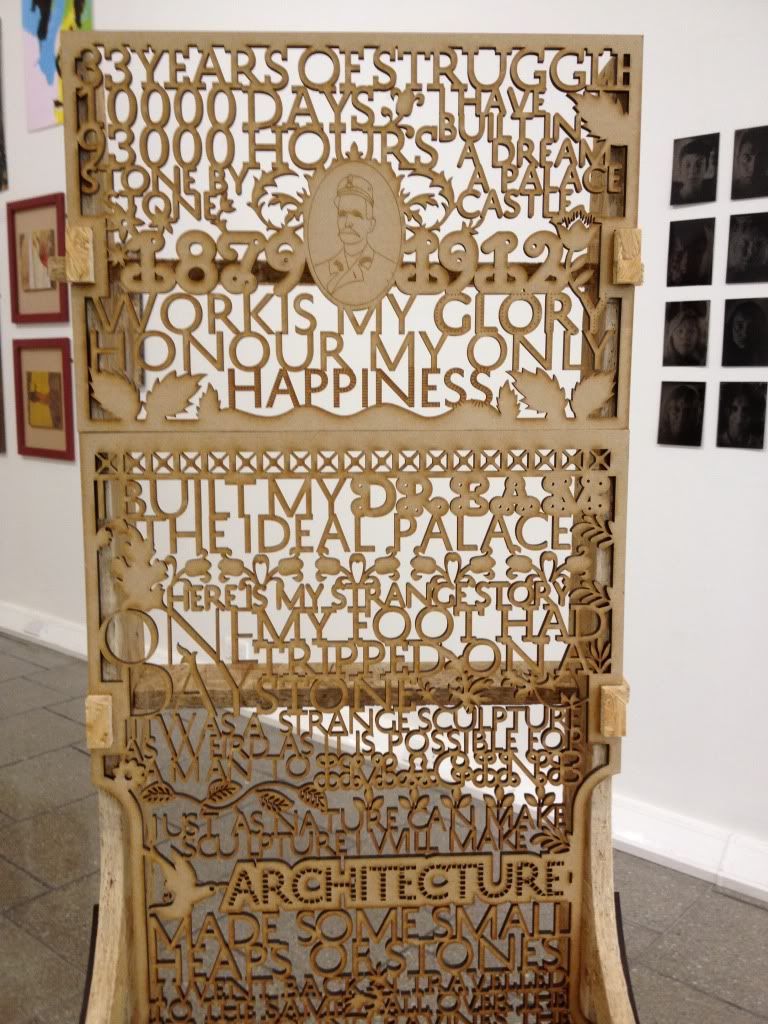 33 YEARS OF STRUGGLE
10000 DAYS I HAVE
93000 HOURS BUILT IN
STONE BY A DREAM
STONE A PALACE
CASTLE
1879 1912
WORK IS MY GLORY
HONOUR MY ONLY
HAPPINESS
BUILT MY DREAM
THE IDEAL PALACE
HERE IS MY STRANGE STORY
ONE MY FOOT HAD
DAY TRIPPED ON A
STONE
IT WAS A STRANGE SCULPTURE
AS WEIRD AS IT IS POSSIBLE FOR
A MAN TO IMAGINE
JUST AS NATURE CAN MAKE
SCULPTURE I WILL MAKE
ARCHITECTURE
MADE SOME SMALL
HEAPS OF STONES
I WENT BACK I TRAVELLED
TO THE SAME ALL OVER THE